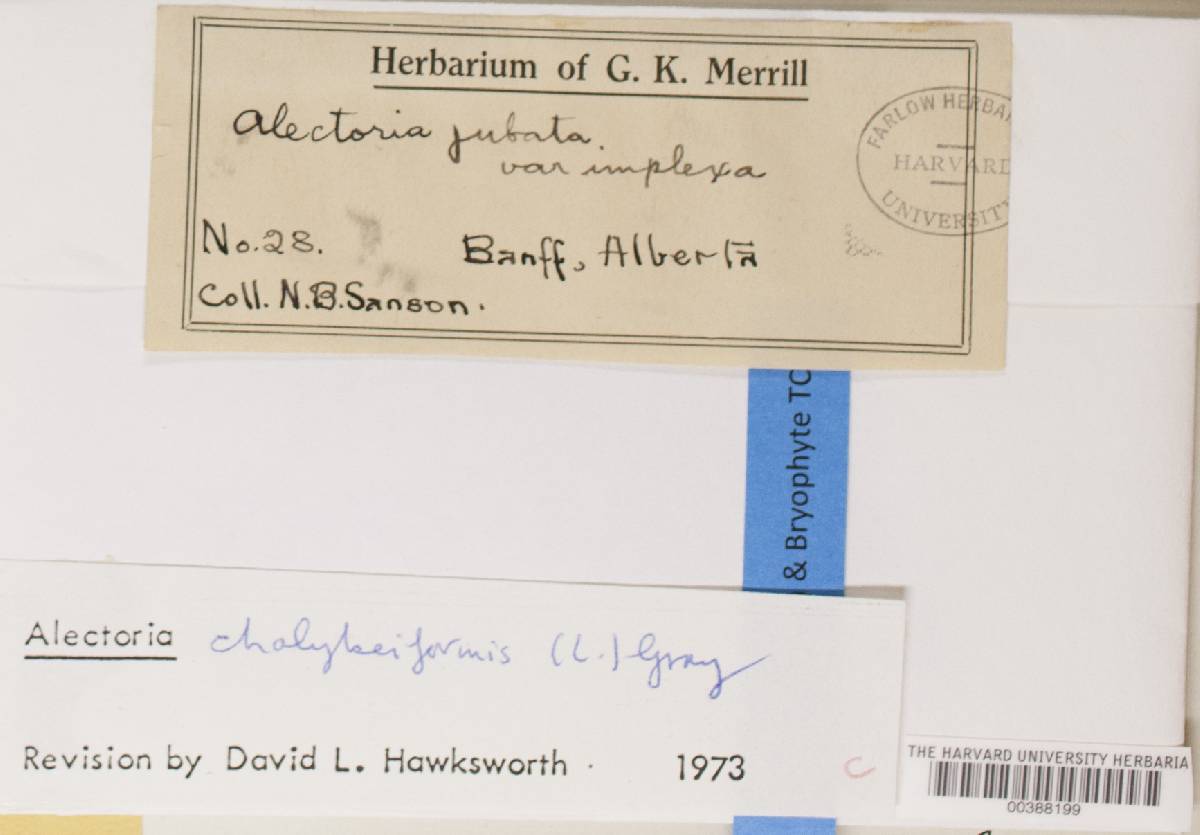 Herbarium of G. K. Merrill
Alectoria jubata.
var implexa
FARLOW HERBA
HARVARD
UNIVERSITY
No. 28.
Banff, Alberta
Coll. N. B. Sanson.
& Bryophyte TC
Alectoria chalybeiformis (L.) Gray
Revision by David L. Hawksworth
1973
C
THE HARVARD UNIVERSITY HERBARIA
00388199